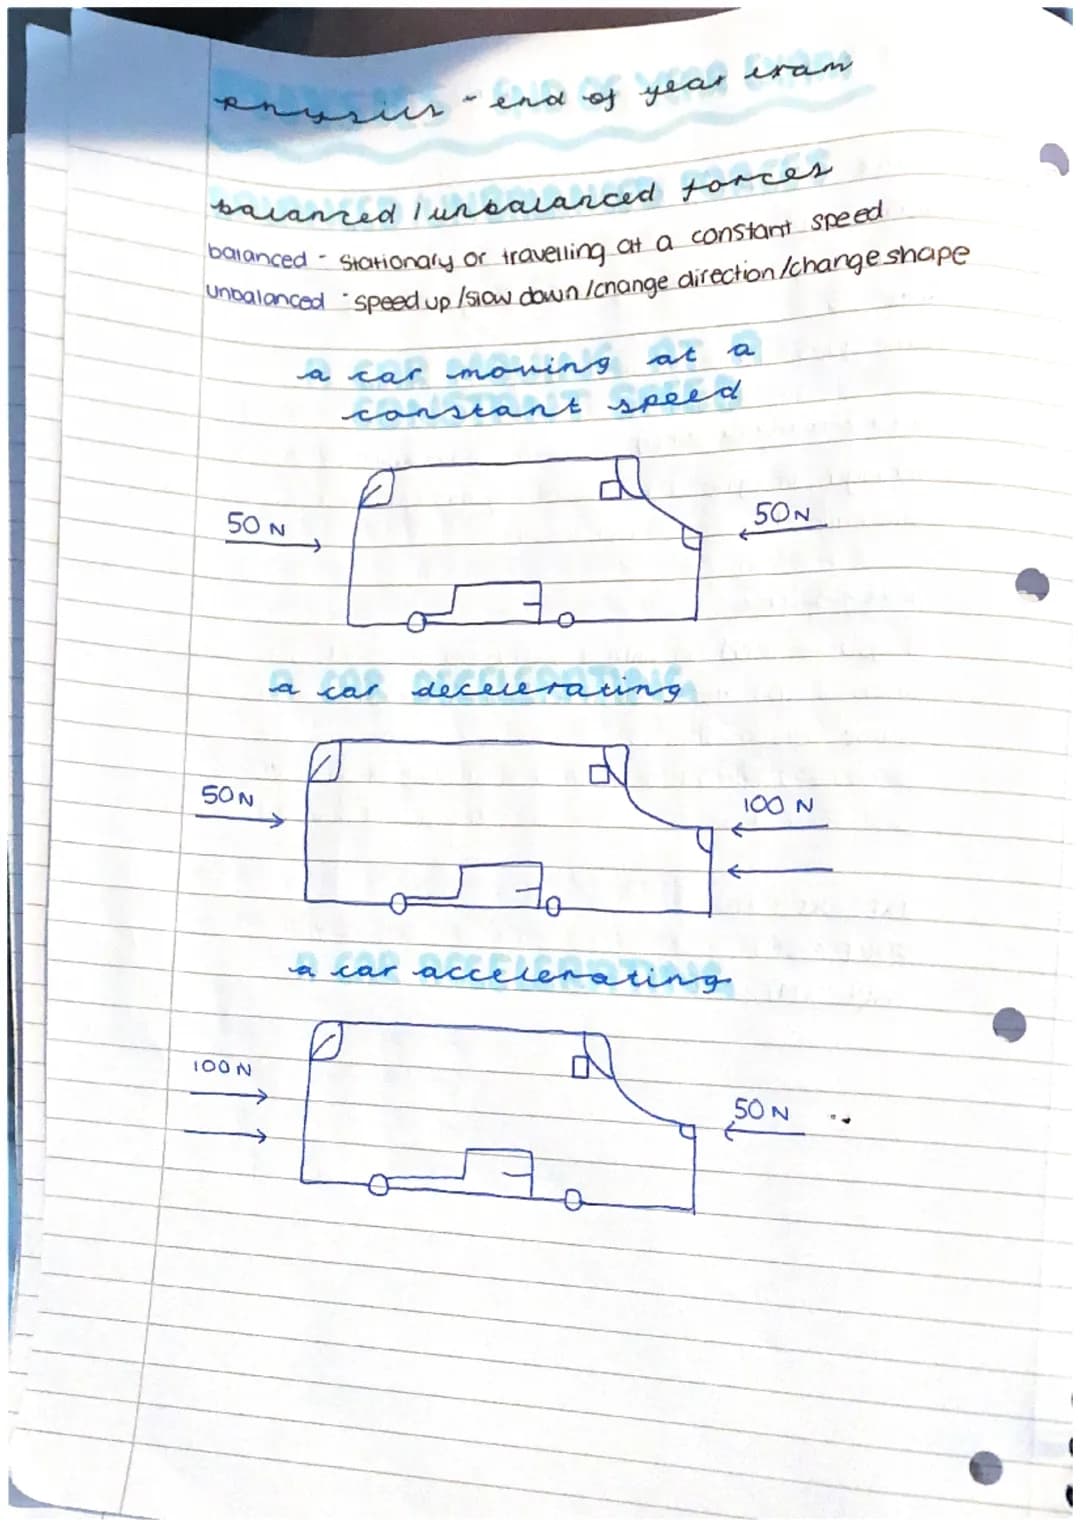 physics - end of year exam
balanced / unbalanced forces
balanced - stationary or travelling at a constant speed
unbalanced - speed up /slow down /change direction /change shape
a car moving at a
constant speed
50 N
50N
a car decelerating
50N
100 N
a car accelerating
100 N
50 N